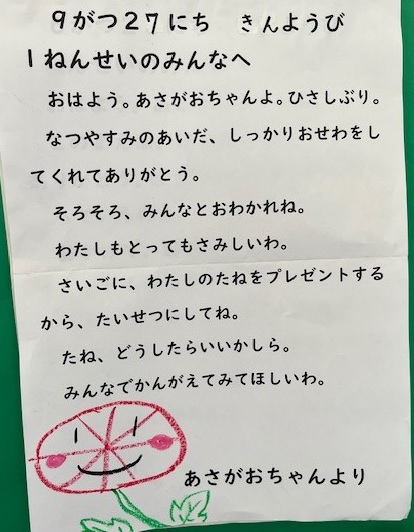 9がつ27にち　きんようび
1ねんせいのみんなへ
おはよう。あさがおちゃんよ。ひさしぶり。
なつやすみのあいだ、しっかりおせわをし
てくれてありがとう。
そろそろ、みんなとおわかれね。
わたしもとってもさみしいわ。
さいごに、わたしのたねをプレゼントする
から、たいせつにしてね。
たね、どうしたらいいかしら。
みんなでかんがえてみてほしいわ。
あさがおちゃんより